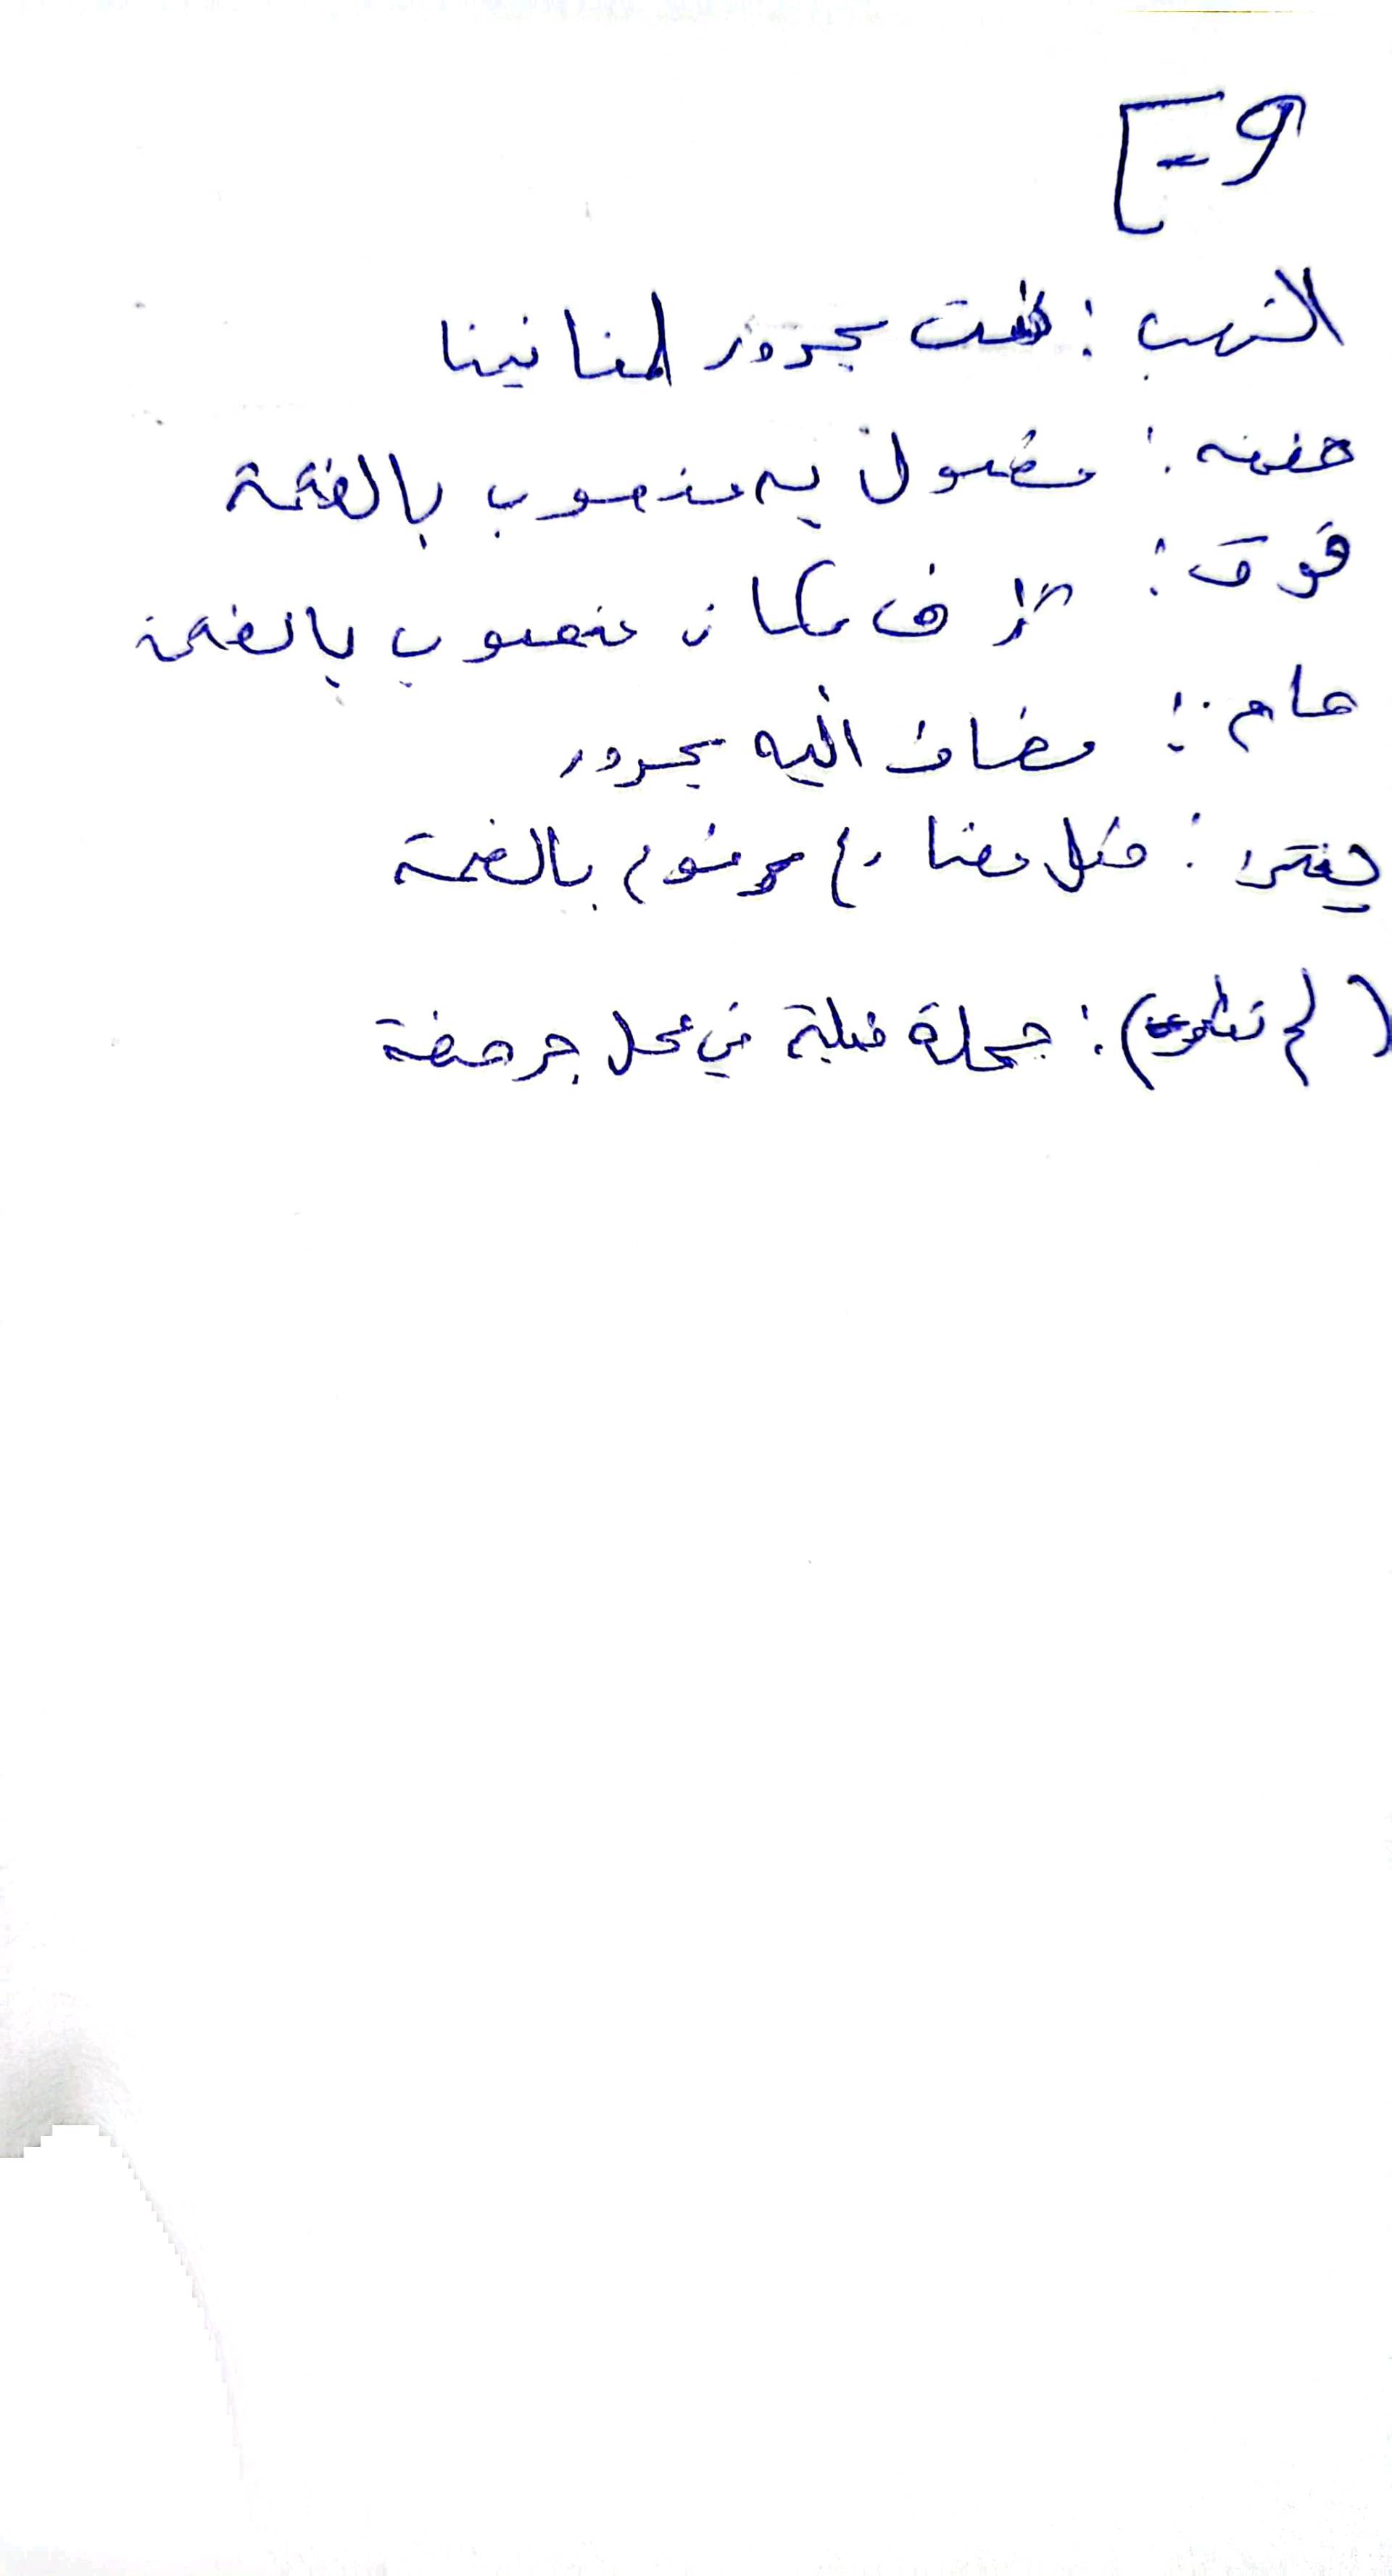 ٩-
الشهب : نعت مجرور لمنانينا
حفنه : مفعول به منصوب بالفتحة
فوق : ظرف مكان منصوب بالفتحة
هام : مضاف اليه مجرور
: فعل مضارع مرفوع بالضمة
(لم ) : جملة فعلية في محل جر صفة